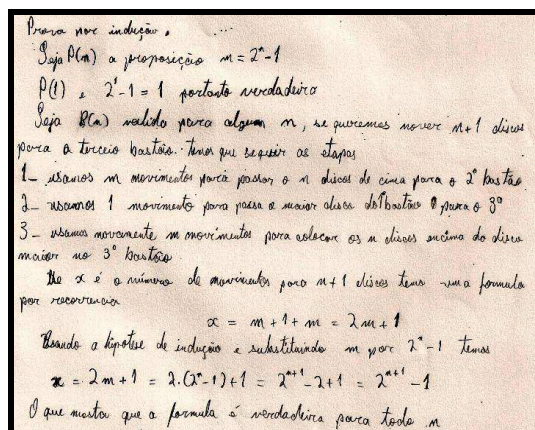 Prova por indução. ....
Seja P(n) a proposição m = 2ⁿ-1
P(1) é 2¹-1 = 1 portanto verdadeira
Seja P(n) válido para algum n, se queremos mover n+1 discos
para o terceio bastão. temos que seguir as etapas
1_ usamos m movimentos para passar o n discos de cima para o 2º bastão
2_ usamos 1 movimento para passa o maior disco do 1º bastão para o 3º
3 - usamos novamente m movimentos para colocar os n discos encima do disco
maior no 3º bastão
Se x é o número de movimentos para n+1 discos temos uma formula
por recorrencia
x = m+1+m = 2m+1
Usando a hipótese de indução e substituindo m por 2ⁿ-1 temos
x = 2m+1 = 2.(2ⁿ-1)+1 = 2ⁿ⁺¹-2+1 = 2ⁿ⁺¹-1
O que mostra que a formula é verdadeira para todo n